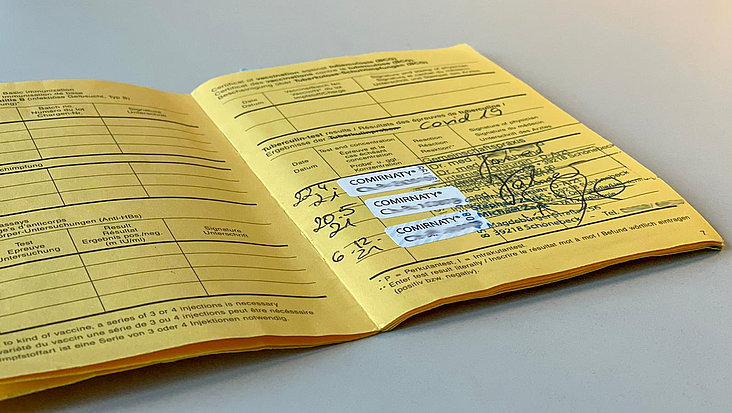 Basic immunization
immunisation de base
titis B (infektiöse Gelbsucht, Typ B)
Batch no.
Numéro du lot
Chargen-Nr.
Signature
Unterschrift
schimpfung
assays
age's d'anticorps
örper-Untersuchungen (Anti-HBs)
Test
Epreuve
Untersuchung
Result
Résultat
Ergebnis pos./neg.
(m IU/ml)
Signature
Unterschrift
to kind of vaccine, a series of 3 or 4 injections is necessary
variété du vaccin une série de 3 ou 4 injections peut être nécéssaire
mpfstoffart ist eine Serie von 3 oder 4 Injektionen notwendig.
Certificat of vaccination against tuberculosis (BCG)
Certificat des vaccinations contre la tuberculose (BCG)
Bescheinigung über Tuberkulose-Schutzimpfungen (BCG)
Date
Datum
Tuberculin-test results / Résultats des épreuves de tuberculine /
Ergebnisse der Tuberkulinproben
Covid 19
Date
Datum
Test and concentration
Épreuve et sa
concentration
Probe u. ggf.
Konzentration
Reaction
Réaction
Reaktion
Signature of physician
Signature du médecin
Unterschrift des Arztes
22.4.
21
COMIRNATY®
20.5
21
COMIRNATY®
6.12.
21
COMIRNATY®
39218 Schönebeck
Tel.
· P = Perkutantest, I = Intrakutantest
·· Enter test result literally / Inscrire le résultat mot à mot / Befund wörtlich eintragen
(positiv bzw. negativ).
7